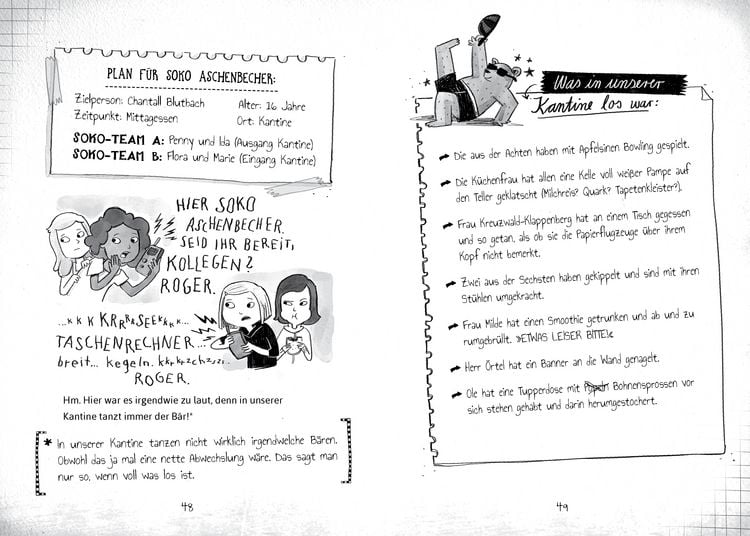 PLAN FÜR SOKO ASCHENBECHER:
Zielperson: Chantall Blutbach Alter: 16 Jahre
Zeitpunkt: Mittagessen Ort: Kantine
SOKO-TEAM A: Penny und Ida (Ausgang Kantine)
SOKO-TEAM B: Flora und Marie (Eingang Kantine)
HIER SOKO
ASCHENBECHER.
SEID IHR BEREIT,
KOLLEGEN?
ROGER.
...K K K KRRRRSEEKKRK...
TASCHENRECHNER...
breit... kegeln. kkrkrzchzszi...
ROGER.
Hm. Hier war es irgendwie zu laut, denn in unserer
Kantine tanzt immer der Bär!*
* In unserer Kantine tanzen nicht wirklich irgendwelche Bären.
Obwohl das ja mal eine nette Abwechslung wäre. Das sagt man
nur so, wenn voll was los ist.
48
Was in unserer
Kantine los war:
Die aus der Achten haben mit Apfelsinen Bowling gespielt.
Die Küchenfrau hat allen eine Kelle voll weißer Pampe auf
den Teller geklatscht (Milchreis? Quark? Tapetenkleister?).
Frau Kreuzwald-Klappenberg hat an einem Tisch gegessen
und so getan, als ob sie die Papierflugzeuge über ihrem
Kopf nicht bemerkt.
Zwei aus der Sechsten haben gekippelt und sind mit ihren
Stühlen umgekracht.
Frau Milde hat einen Smoothie getrunken und ab und zu
rumgebrüllt. »ETWAS LEISER BITTE!«
Herr Ortel hat ein Banner an die Wand genagelt.
Ole hat eine Tupperdose mit Bohnensprossen vor
sich stehen gehabt und darin herumgestochert.
49